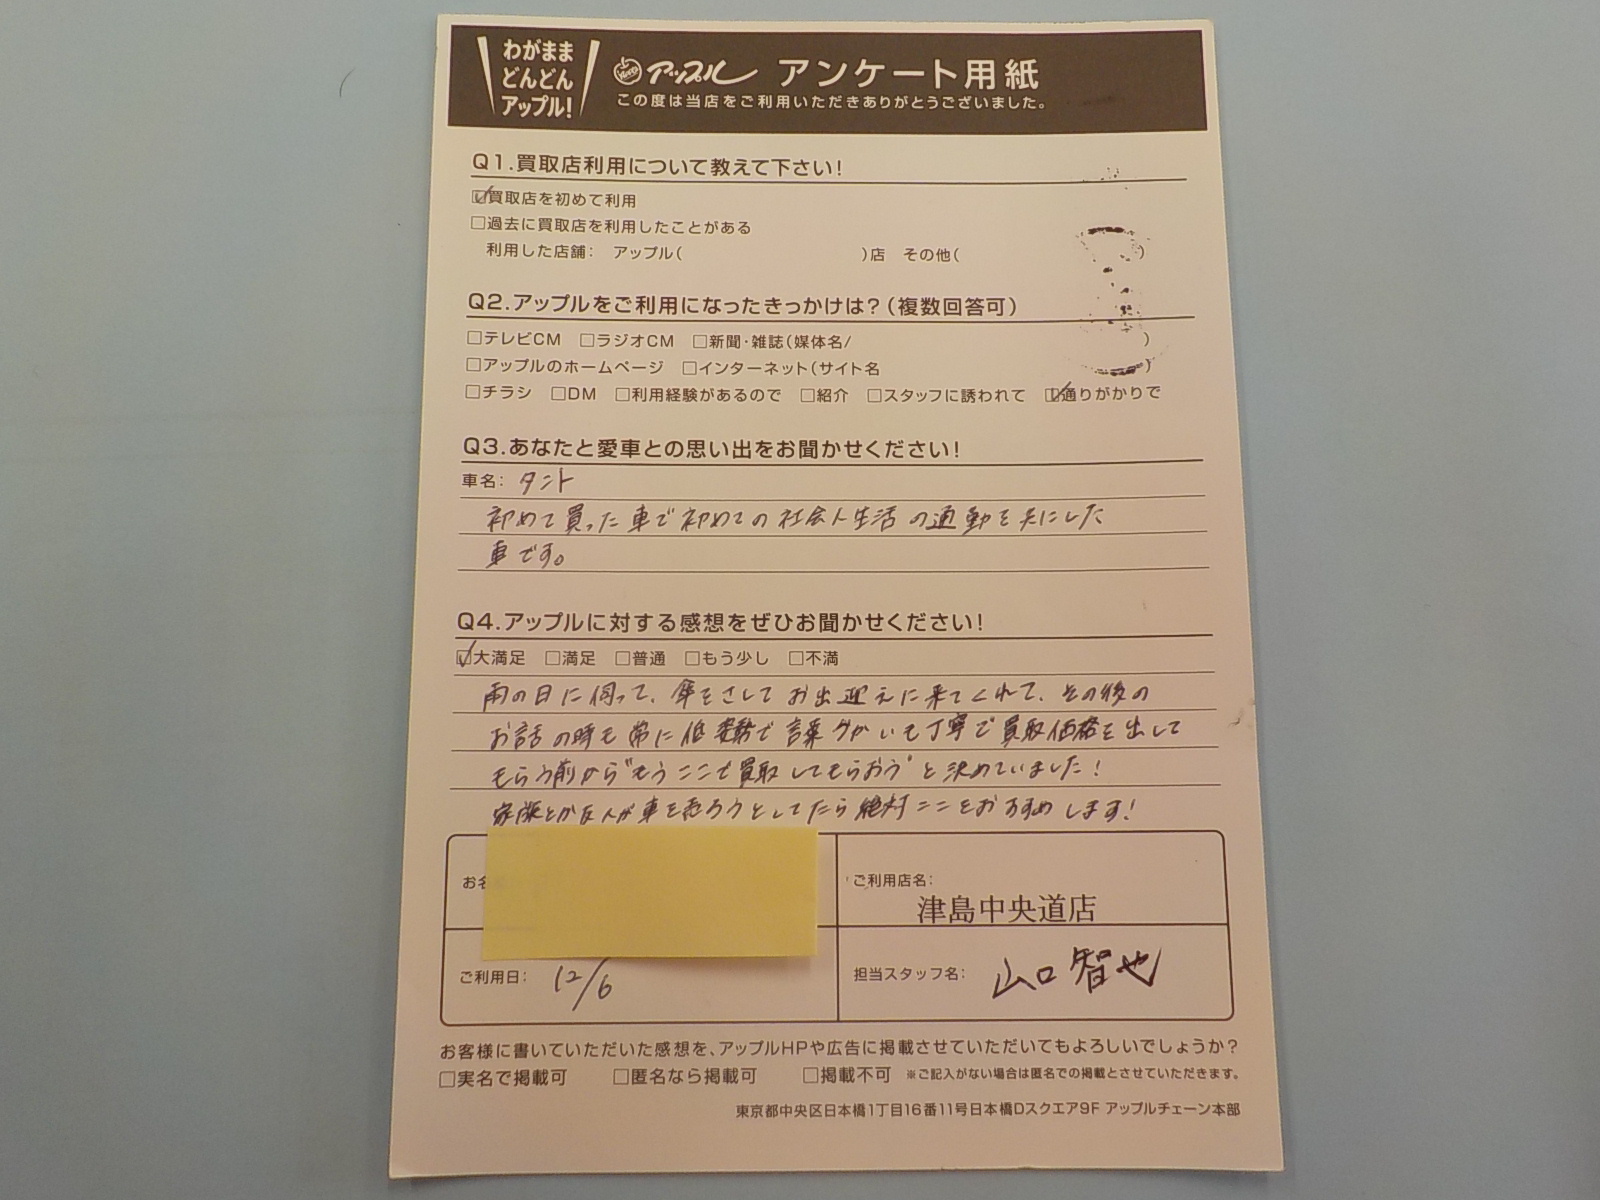 わがまま
どんどん
アップル!
アップル アンケート用紙
この度は当店をご利用いただきありがとうございました。
Q1.買取店利用について教えて下さい!
☑買取店を初めて利用
□過去に買取店を利用したことがある
利用した店舗: アップル( )店 その他( )
Q2.アップルをご利用になったきっかけは?(複数回答可)
□テレビCM □ラジオCM □新聞・雑誌(媒体名/ )
□アップルのホームページ □インターネット(サイト名 )
□チラシ □DM □利用経験があるので □紹介 □スタッフに誘われて ☑通りがかりで
Q3.あなたと愛車との思い出をお聞かせください!
車名: タント
初めて買った車で初めての社会人生活の通勤を共にした
車です。
Q4.アップルに対する感想をぜひお聞かせください!
☑大満足 □満足 □普通 □もう少し □不満
雨の日に伺って、傘をさしてお出迎えに来てくれて、その後の
お話の時も常に低姿勢で言葉づかいも丁寧で買取価格を出して
もらう前から"もうここで買取してもらおう"と決めていました!
家族とか友人が車を売ろうとしてたら絶対ここをおすすめします!
お名
ご利用店名:
津島中央道店
ご利用日: 12/6
担当スタッフ名: 山口智也
お客様に書いていただいた感想を、アップルHPや広告に掲載させていただいてもよろしいでしょうか?
□実名で掲載可 □匿名なら掲載可 □掲載不可 ※ご記入がない場合は匿名での掲載とさせていただきます。
東京都中央区日本橋1丁目16番11号日本橋Dスクエア9F アップルチェーン本部